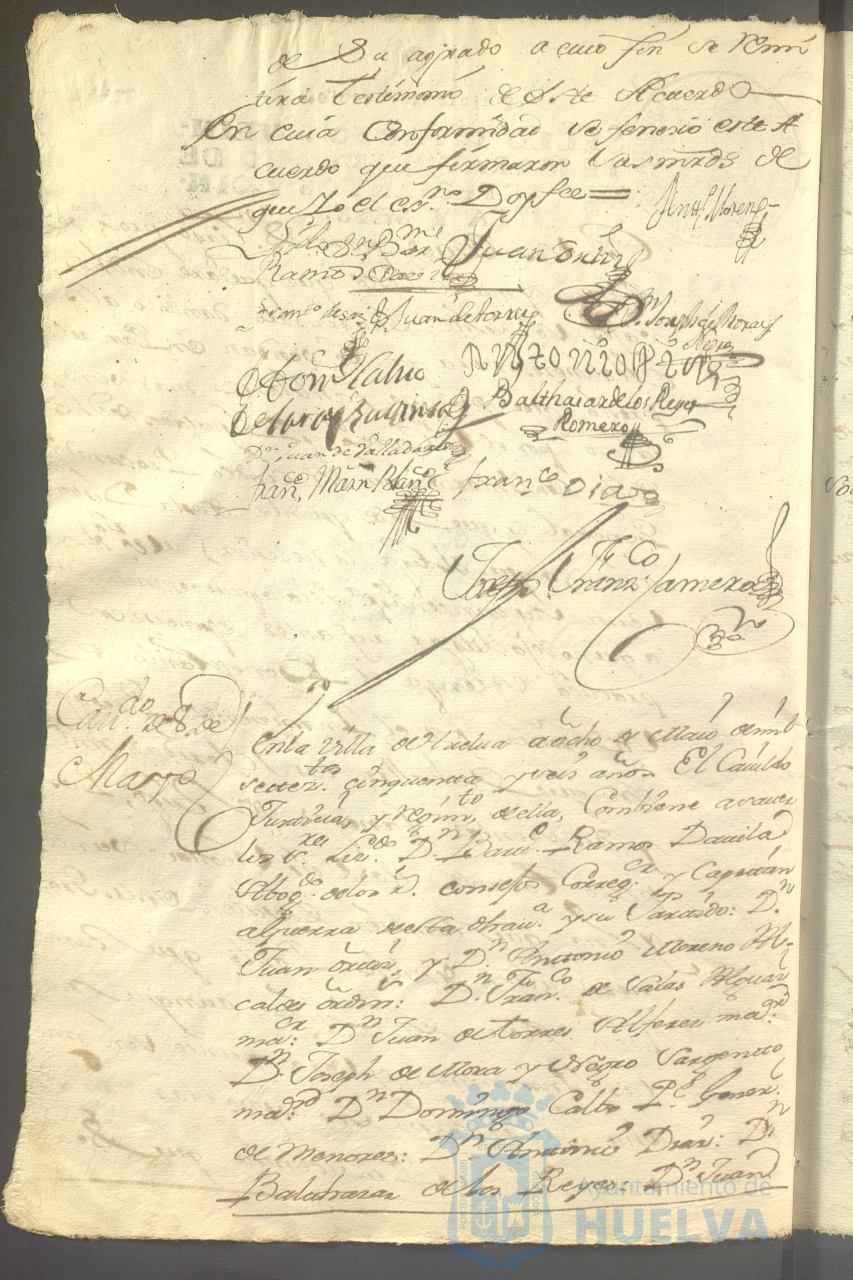 de Su agrado a cuio fin se remi
tirá testimonio de este Acuerdo
En cuia Conformidad se fenesio este A
cuerdo que firmaron Sus mrds de
que Yo el esno Doy fee =
Antt. Moreno
Ramos Davila
Juan Ortiz
Juan de torres
Dn Joseph de Mora y
Negro
Antonio
Balthasar de los Reyes
Romero
Dn Juan de Valladares
Franco Marn Blanco
franco Diaz
Joseph Franco Jamera
Cauildo de 8 de
Mayo
En la Villa de Huelua a ocho de Maio de mil
setezto cinquenta y seis años El Cauildo
Justicia, y regimto de ella, Combiene a sauer
los Sres Lizdo Dn Barme Ramos Dauila
Abogdo de los Rs consejos Corregor y Capitan
a guerra de esta dha va y su Partido: Dn
Juan ortiz, y Dn Antonio Moreno Al-
caldes ordins: Dn Franco de Salas Alguazl
maor: Dn Juan de torres Alferes maor
Dn Joseph de Mora y Negro Sargento
maor Dn Domingo Calbo Pe Gener
de Menores: Dn Antonio Diaz: Dn
Balthazar de los Reyes: Dn Juan
Ayuntamiento de
HUELVA